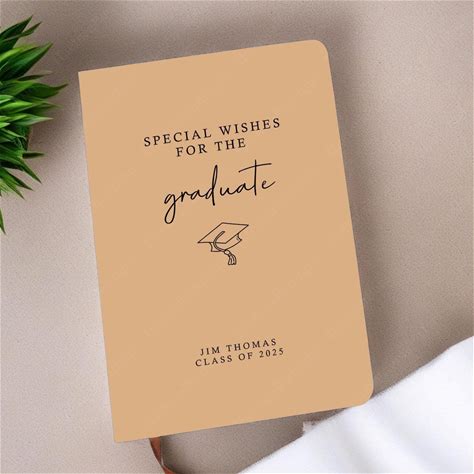 SPECIAL WISHES
FOR THE
graduate
JIM THOMAS
CLASS OF 2025